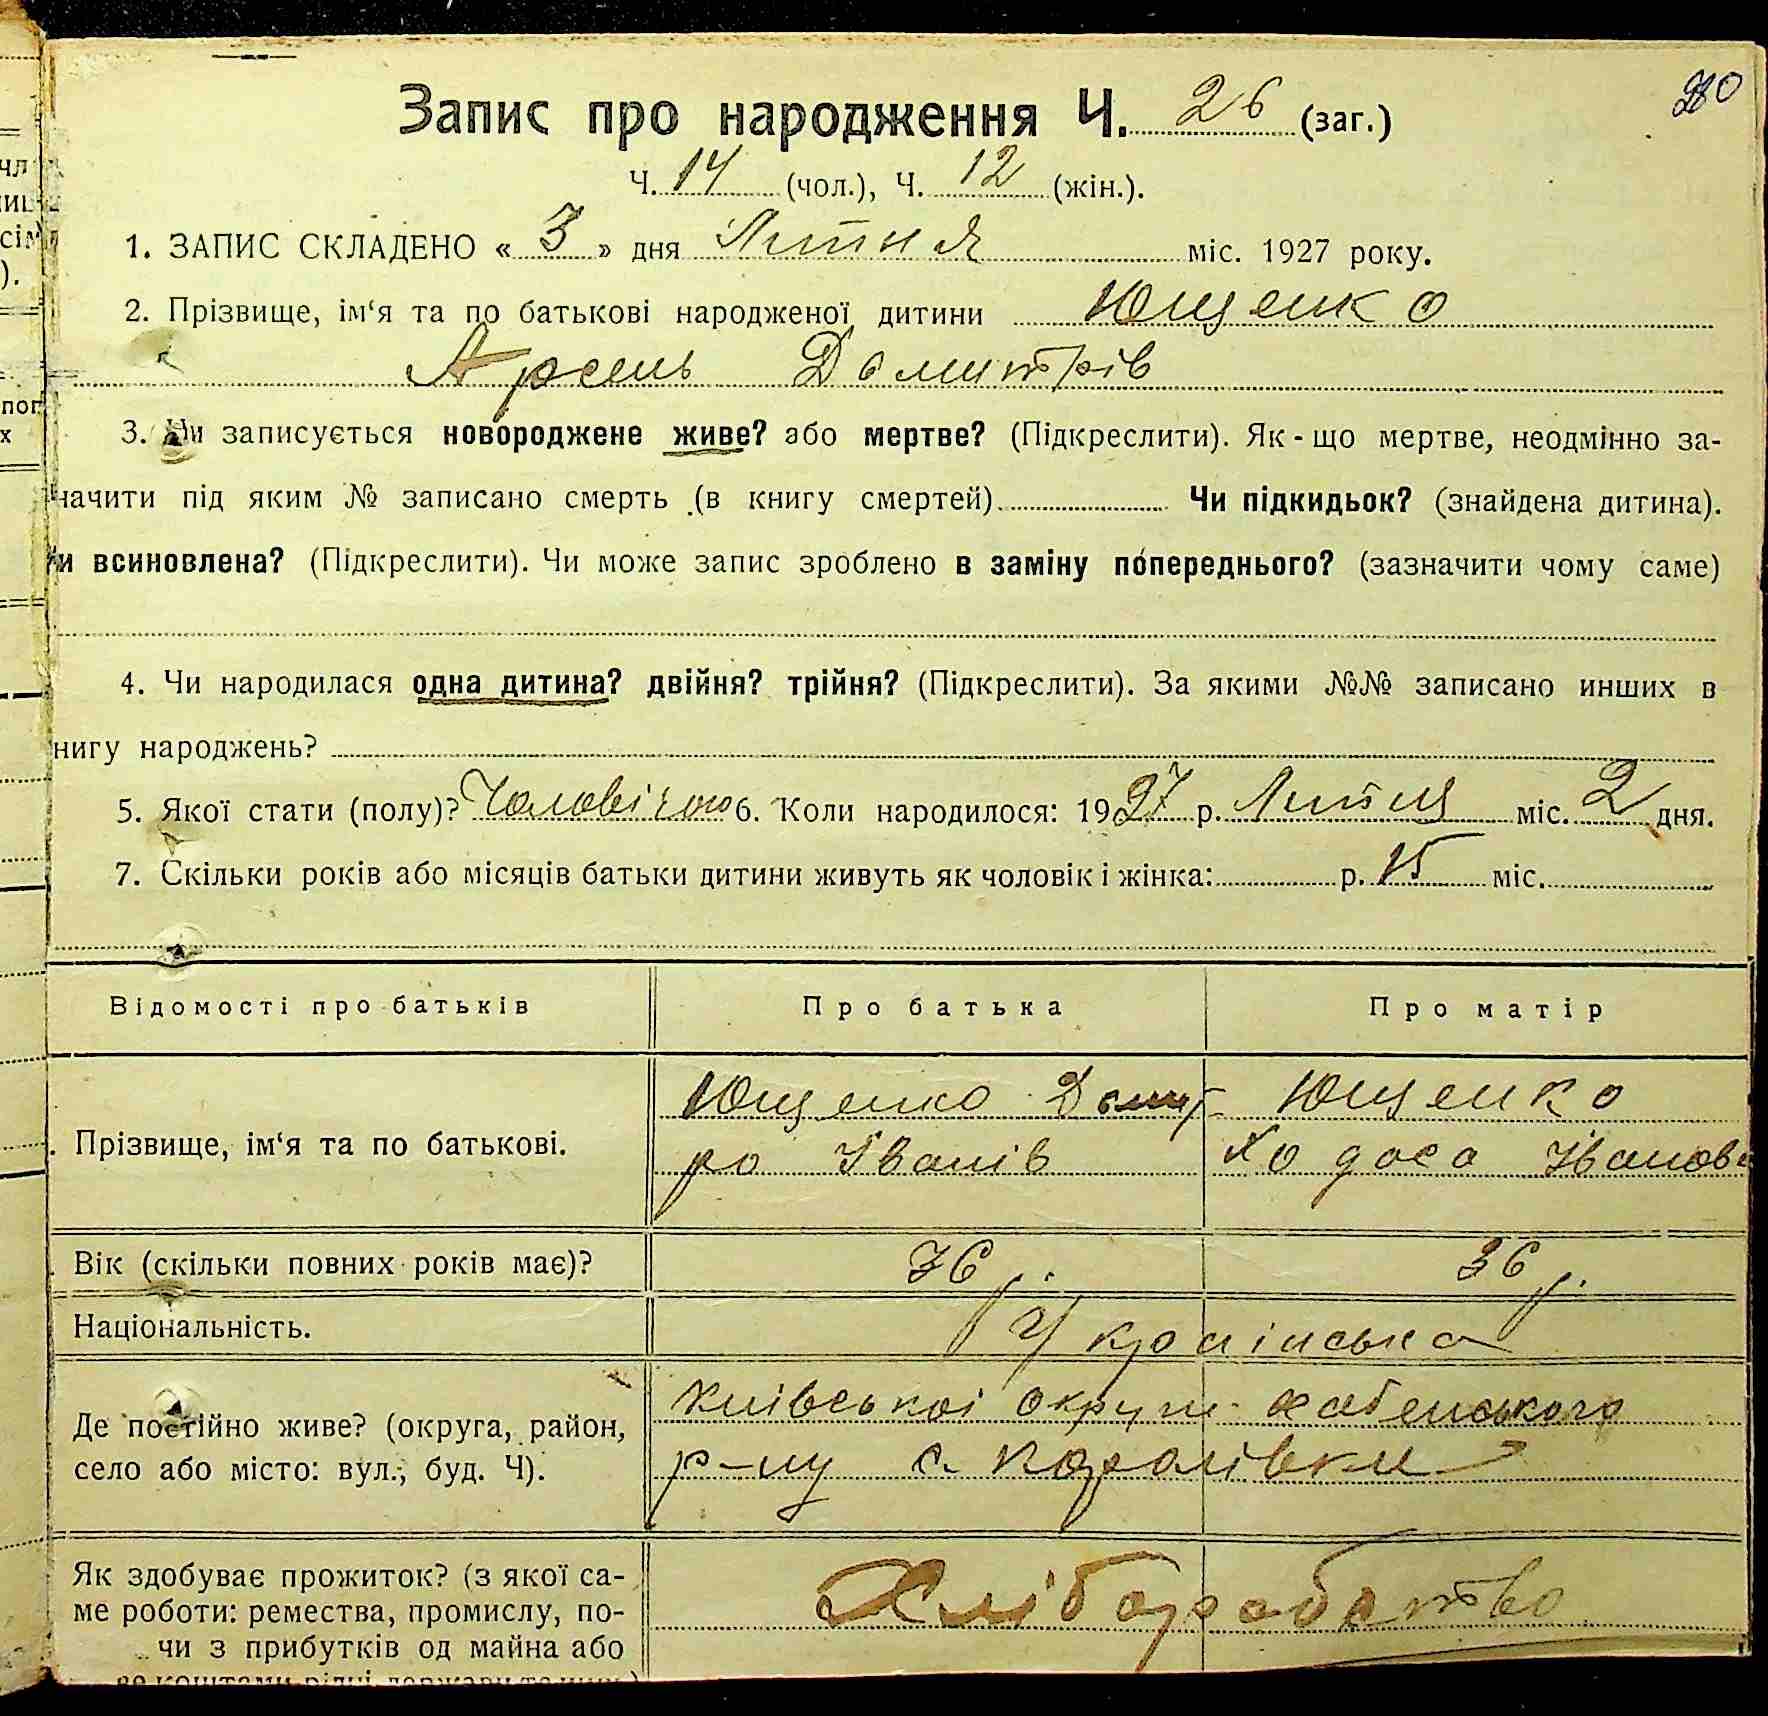 Запис про народження Ч. 26 (заг.)
Ч. 14 (чол.), Ч. 12 (жін.).
1. ЗАПИС СКЛАДЕНО « 3 » дня Липня міс. 1927 року.
2. Прізвище, ім‘я та по батькові народженої дитини Ющенко
Арсень Домитрів
3. Чи записується новороджене живе? або мертве? (Підкреслити). Як-що мертве, неодмінно за-
начити під яким № записано смерть (в книгу смертей). Чи підкидьок? (знайдена дитина).
Чи всиновлена? (Підкреслити). Чи може запис зроблено в заміну попереднього? (зазначити чому саме)
4. Чи народилася одна дитина? двійня? трійня? (Підкреслити). За якими №№ записано инших в
нигу народжень?
5. Якої стати (полу)? Чоловічою 6. Коли народилося: 1927 р. Липця міс. 2 дня.
7. Скільки років або місяців батьки дитини живуть як чоловік і жінка: р. 15 міс.
Відомості про батьків Про батька Про матір
Прізвище, ім‘я та по батькові.
Ющенко Домит
ро Іванів
Ющенко
Ходоса Іванова
Вік (скільки повних років має)? 36 р. 36 р.
Національність. Українська
Де постійно живе? (округа, район,
село або місто: вул., буд. Ч).
Київської округи Хабенського
р-ну с. Королівки
Як здобуває прожиток? (з якої са-
ме роботи: ремества, промислу, по-
чи з прибутків од майна або
Хліборобство